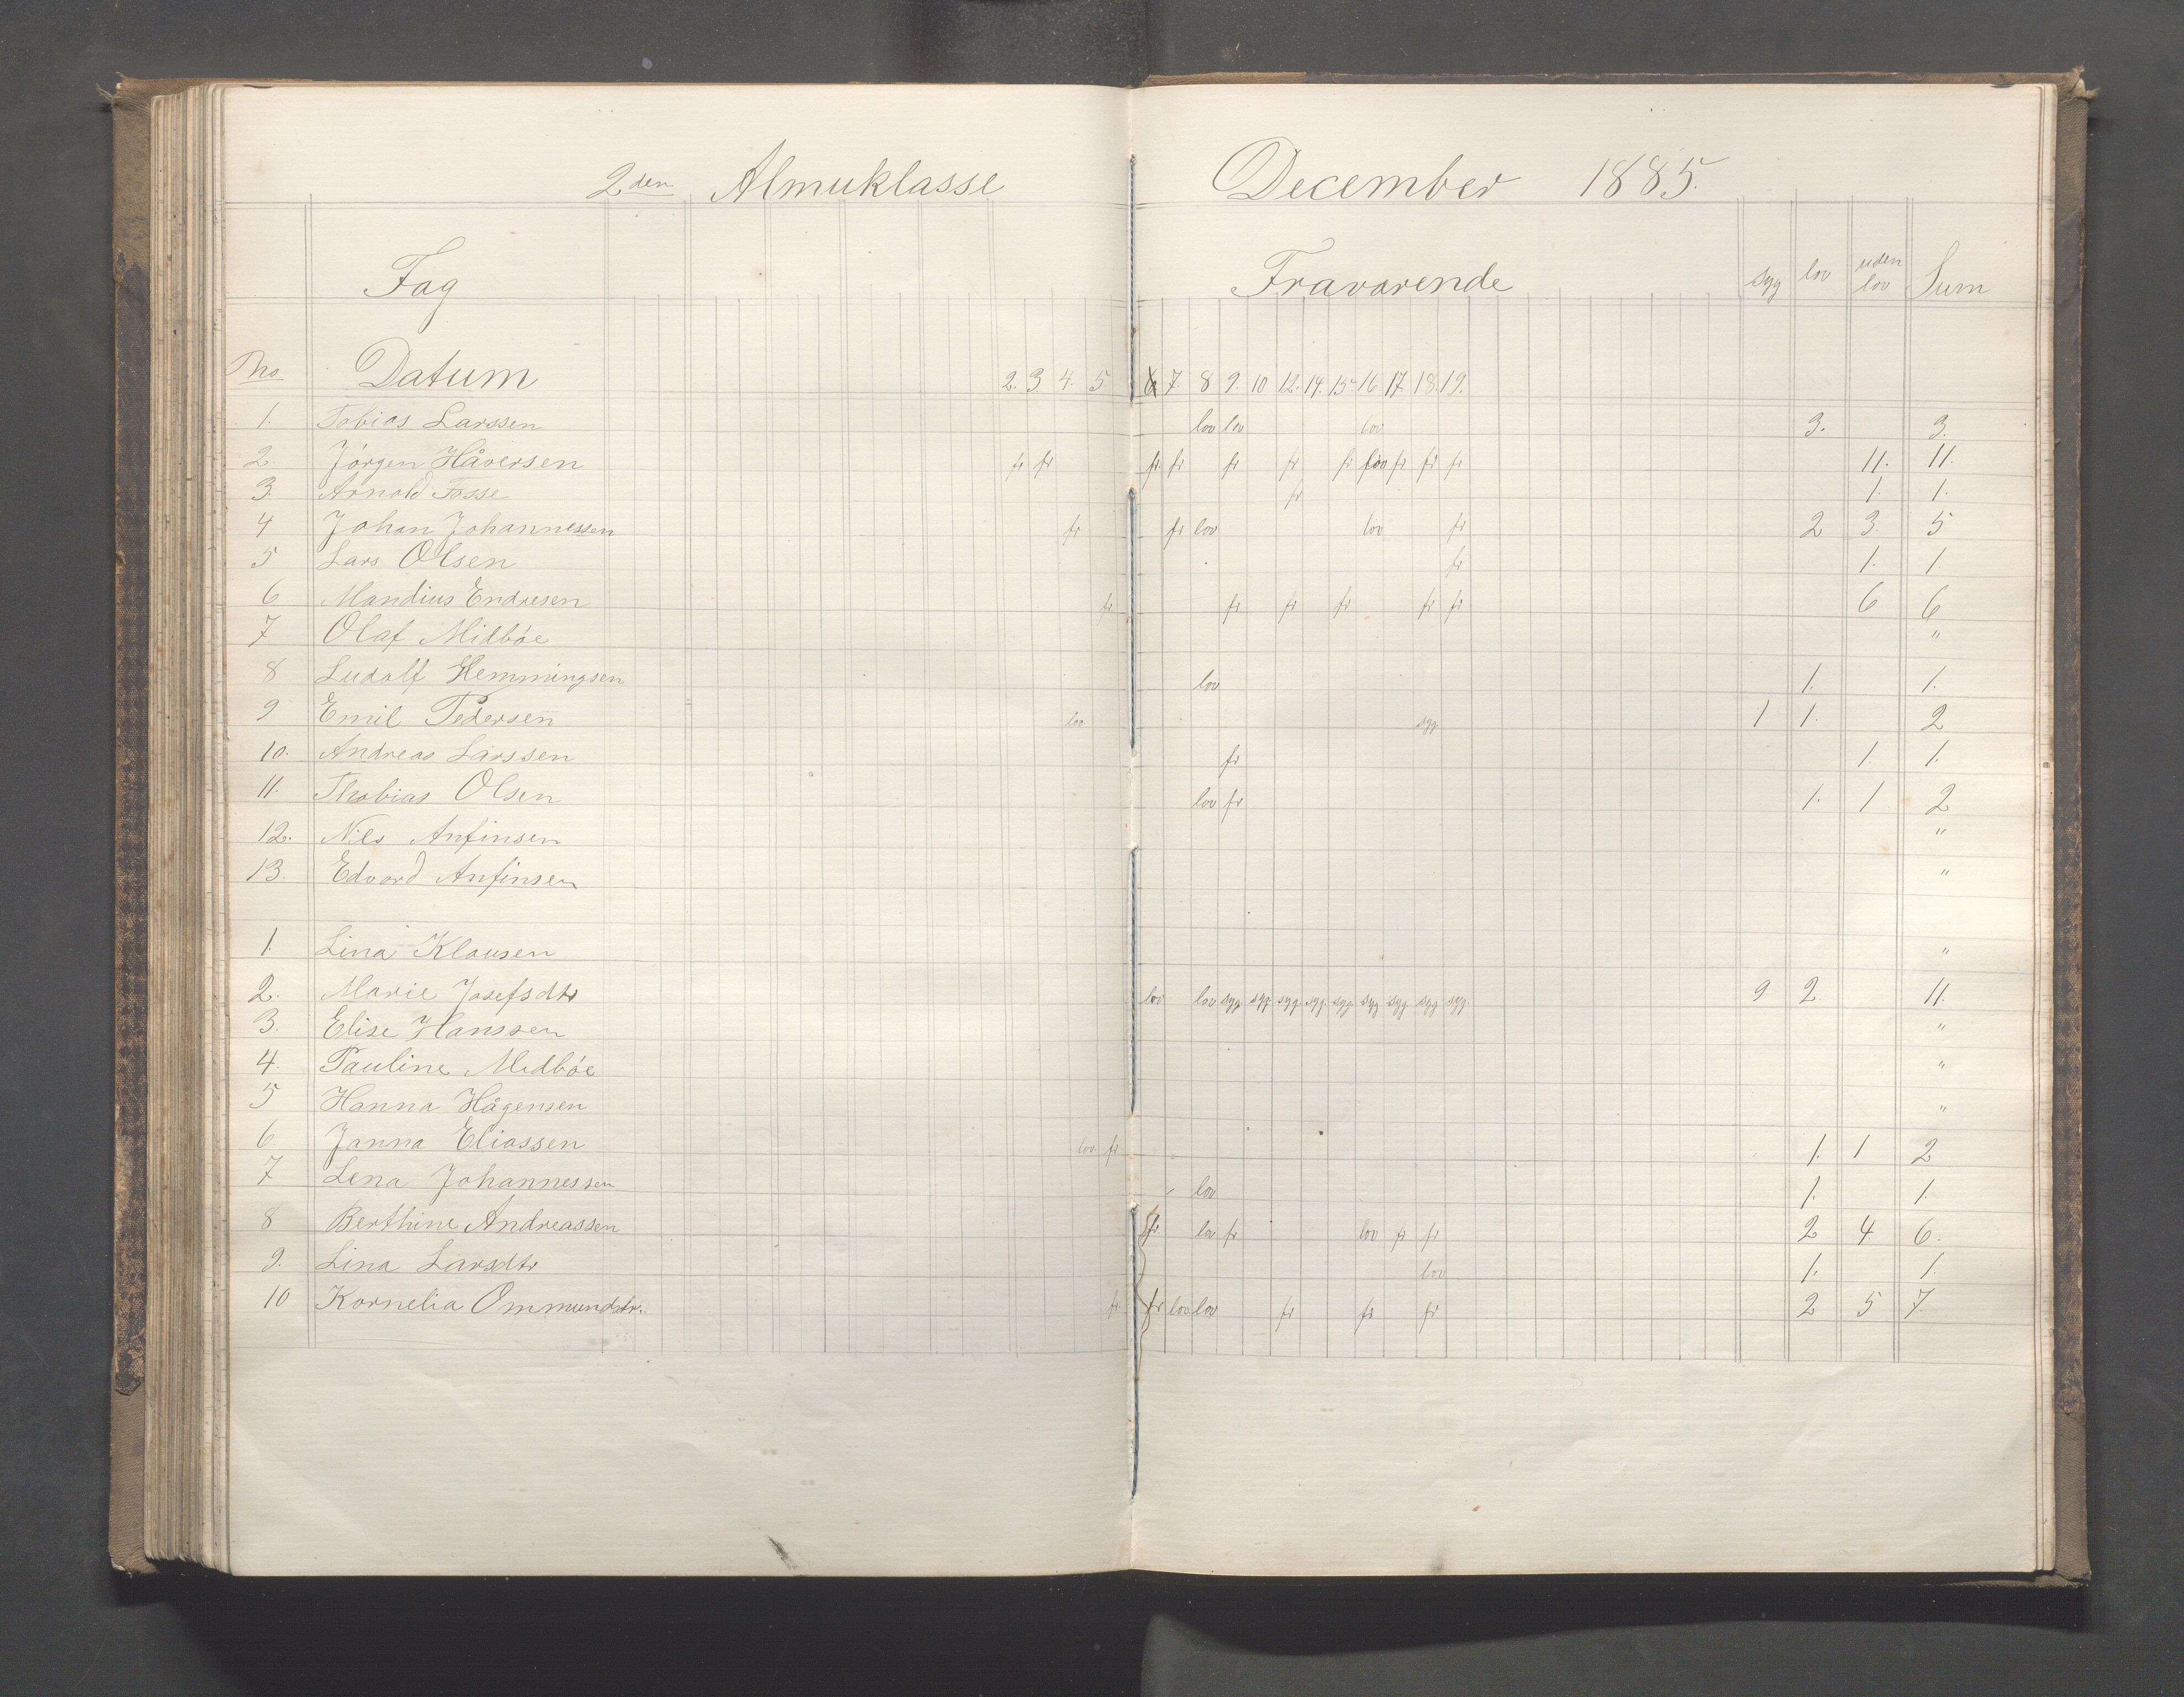 2den Almuklasse December 1885.
Fag Fravarende syg lov uden lov Sum
No Datum 2. 3. 4. 5 6 7. 8 9. 10 12. 14. 15 16 17. 18 19.
1. Tobias Larssen lov lov lov 3. 3.
2. Jörgen Håversen fr fr fr. fr fr fr fr lov fr fr fr 11. 11.
3. Arnold Fosse fr 1. 1.
4 Johan Johannessen fr fr lov lov fr 2 3. 5
5 Lars Olsen fr 1. 1.
6 Mandius Endresen fr fr fr fr fr fr 6 6
7 Olaf Midböe "
8 Ludolf Hemmingsen lov 1. 1.
9 Emil Pedersen lov syg 1 1. 2
10. Andreas Larssen fr 1 1.
11. Thobias Olsen lov fr 1. 1 2
12. Nils Anfinsen "
13. Edvard Anfinsen "
1. Lina Klausen "
2. Marie Josefsdtr lov lov syg. syg. syg. syg. syg. syg syg. syg syg. 9 2. 11.
3. Elise Hanssen "
4. Pauline Midböe "
5 Hanna Hågensen "
6 Janna Eliassen lov. fr 1. 1 2
7 Lena Johannessen lov 1. 1.
8 Berthine Andreassen fr. lov fr lov fr fr 2 4 6.
9. Lina Larsdtr lov 1. 1.
10 Kornelia Ommundstr. fr. fr lov lov fr fr fr 2 5 7.